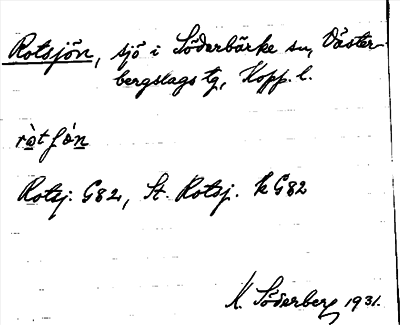 Rotsjön, sjö i Söderbärke sn, Väster-
bergslags tg, Kopp. l.
ròt ʃò̤n
Rotsj: G82, St. Rotsj. k G82
K. Söderberg 1931.